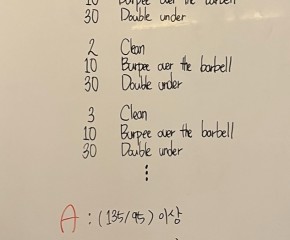 10 Burpee over the barbell
30 Double under
2 Clean
10 Burpee over the barbell
30 Double under
3 Clean
10 Burpee over the barbell
30 Double under
⋮
A : (135/95) 이상